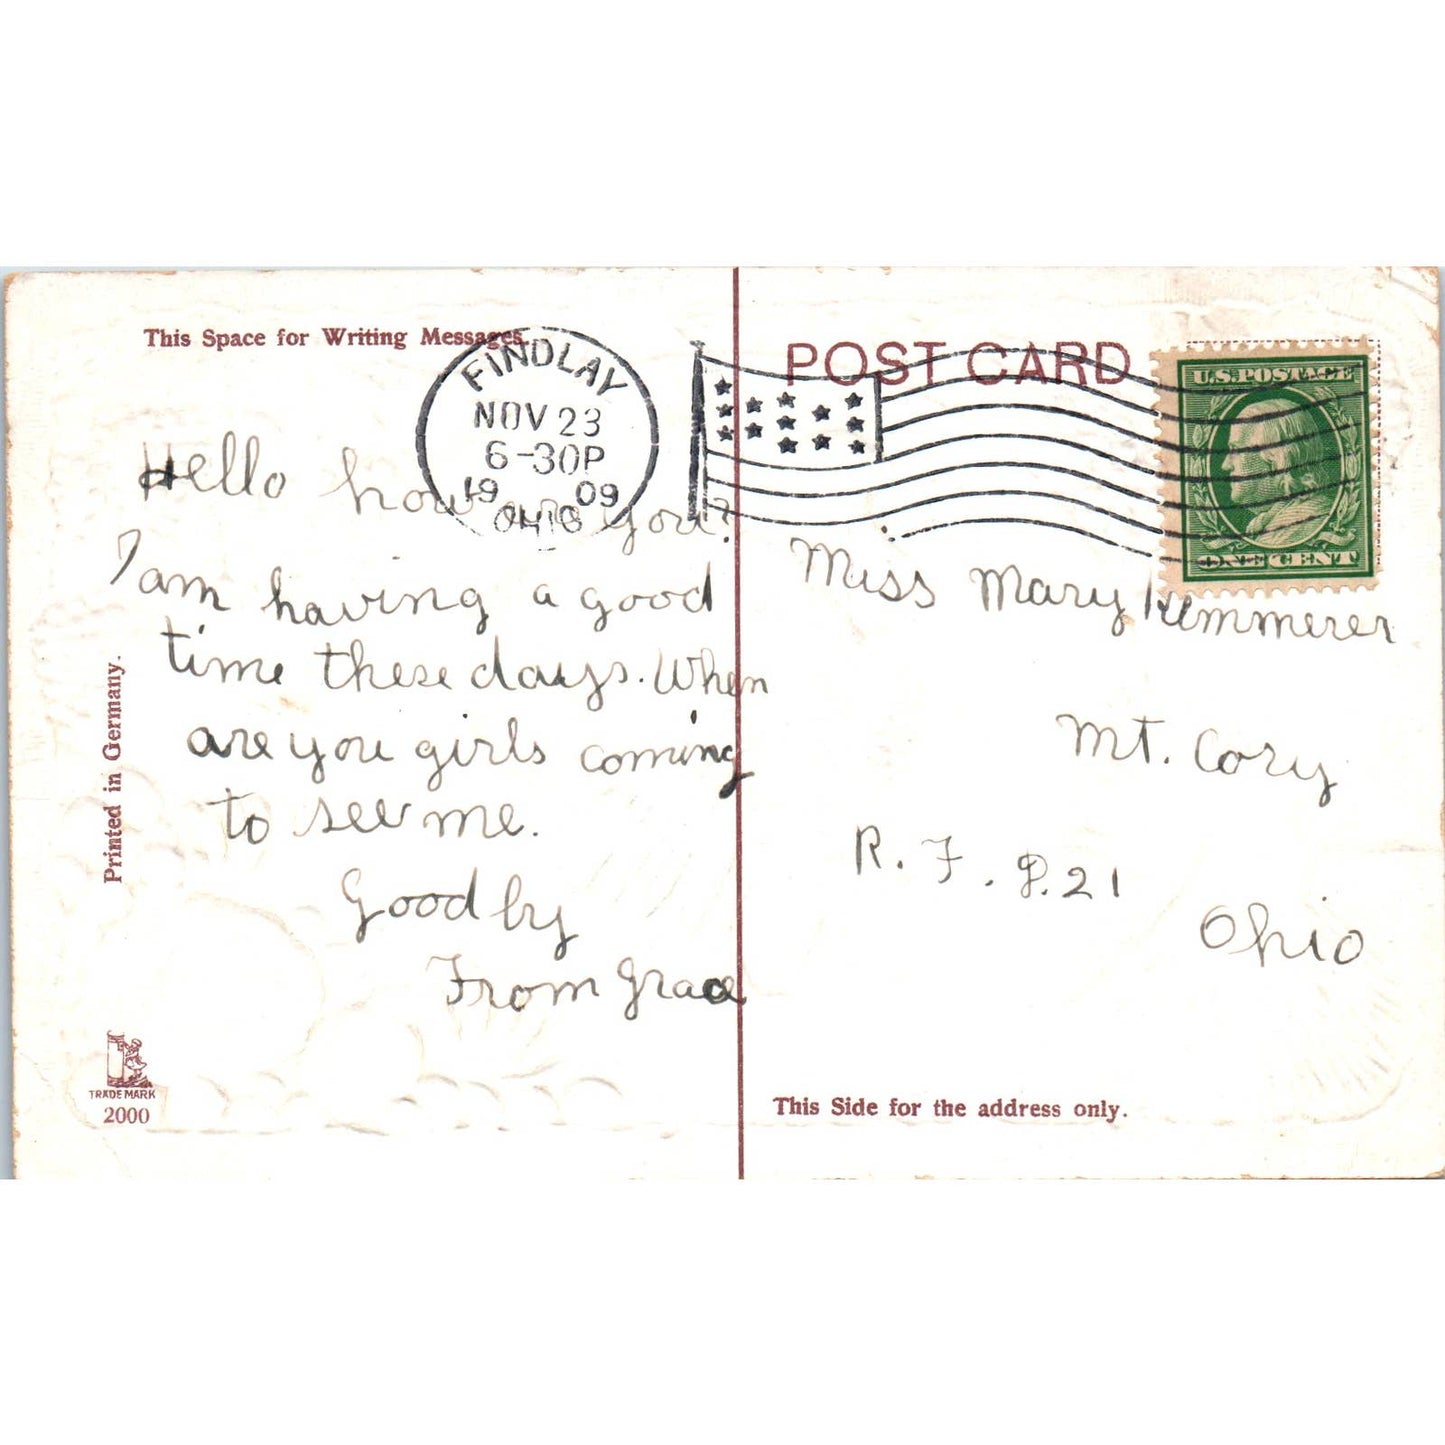 This Space for Writing Messages.
FINDLAY
NOV 23
6-30P
19 09
OHIO
Hello how are you?
I am having a good
time these days. When
are you girls coming
to see me.
Good by
From Grace
Printed in Germany.
TRADE MARK
2000
POST CARD
U.S. POSTAGE
ONE CENT
Miss Mary Kemmerer
Mt. Cory
R. F. D. 21
Ohio
This Side for the address only.